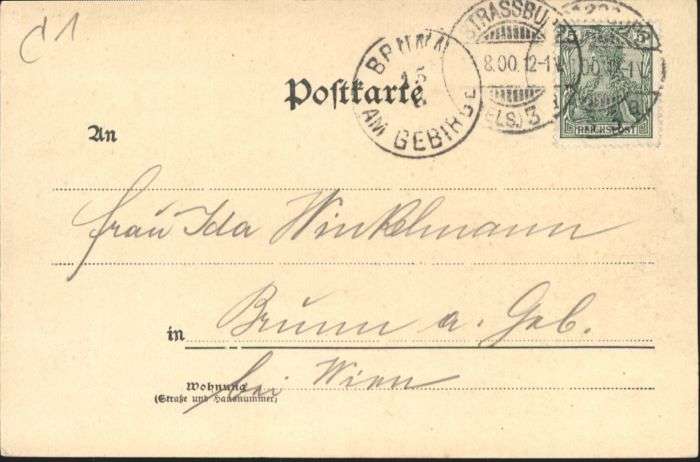 d 1
STRASSBURG
8.00.12-1V.
(ELS.) 3
5 5
REICHSPOST
BRUNN
15
AM GEBIRGE
Postkarte
An
Frau Ida Winkelmann
in Brunn a. Geb.
bei Wien
Wohnung
(Straße und Hausnummer)